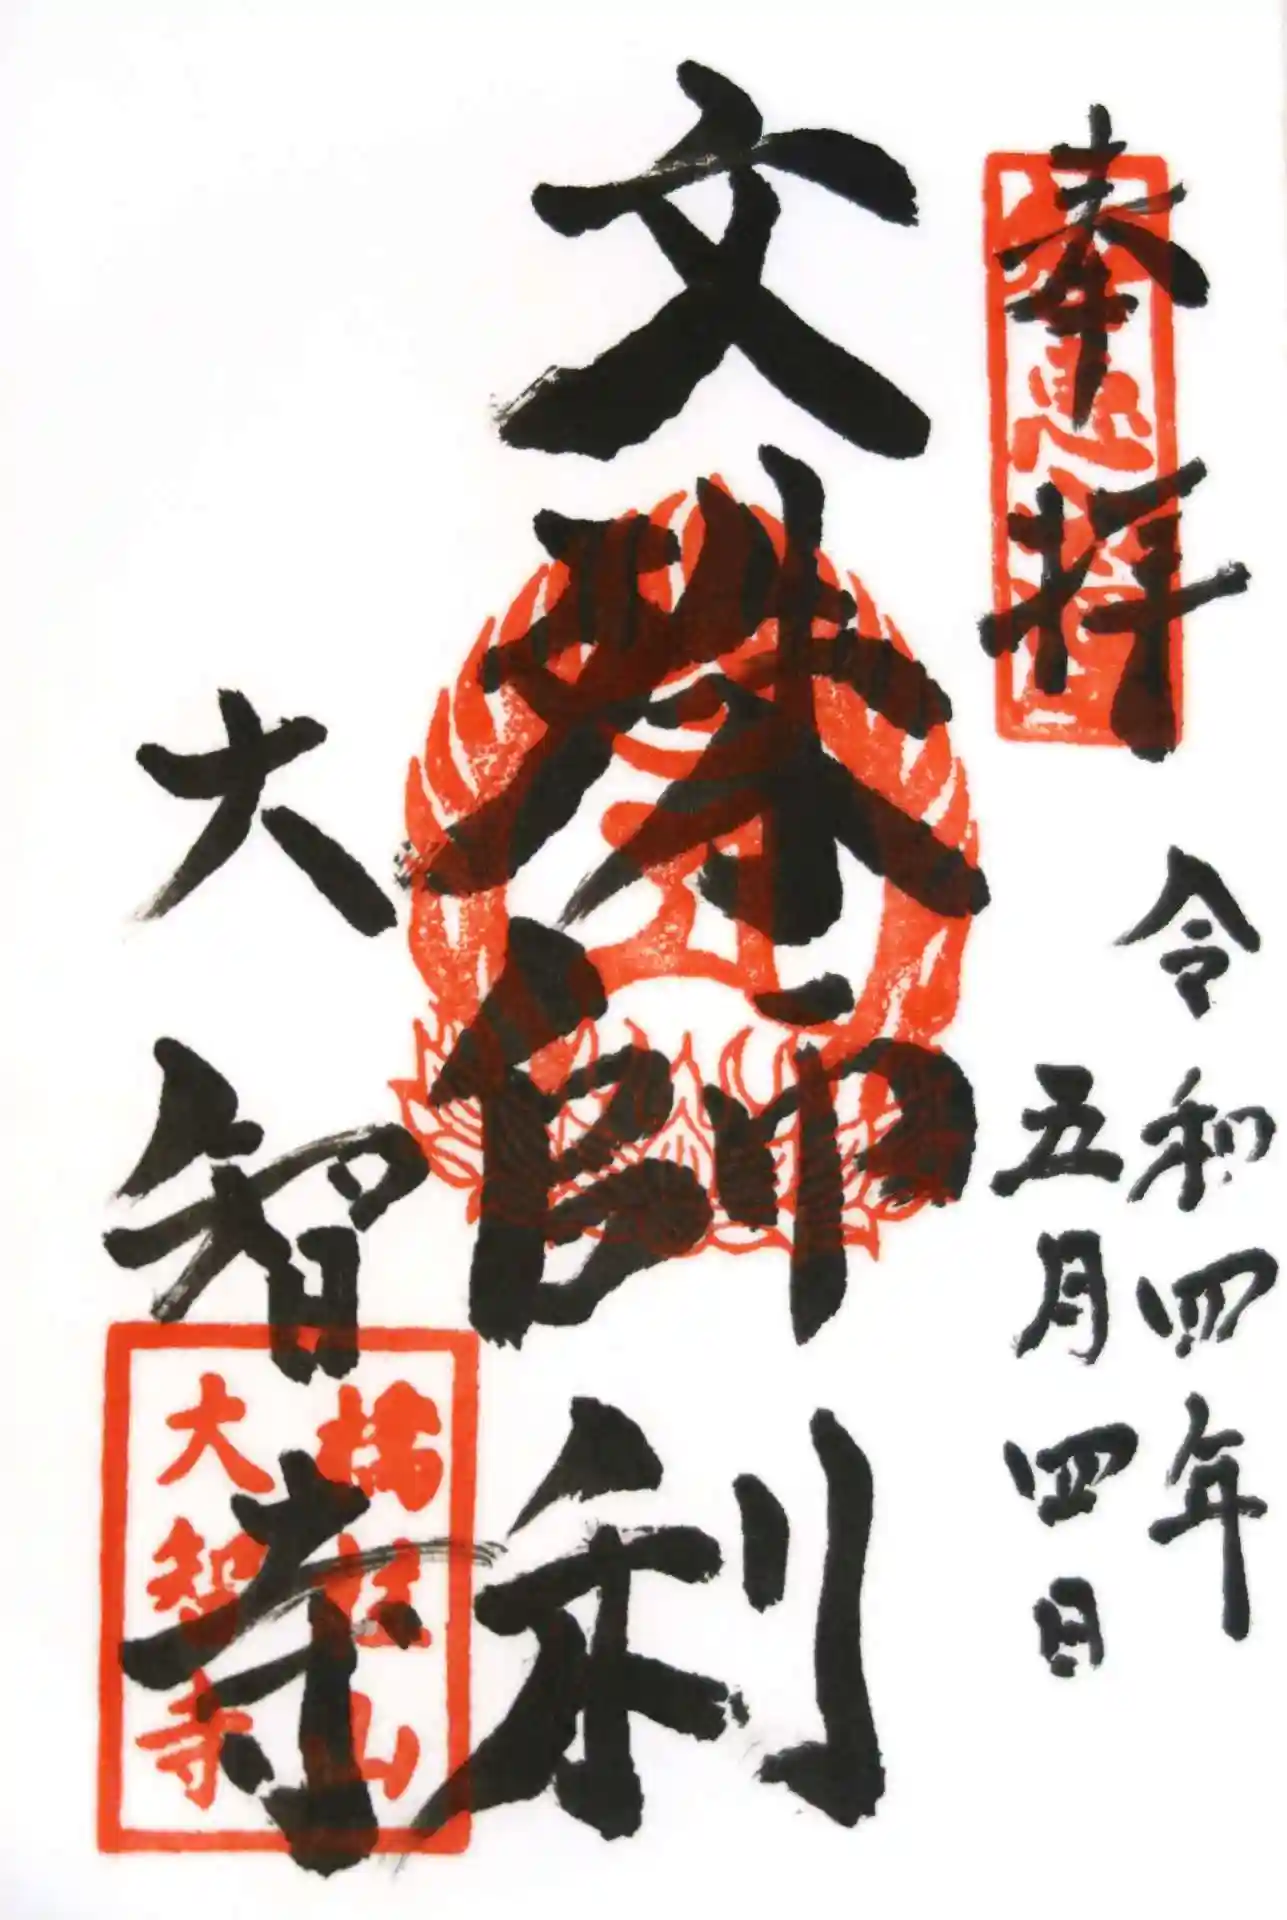 奉拝
令和四年
五月四日
文殊師利
大智寺
橋柱山
大智寺